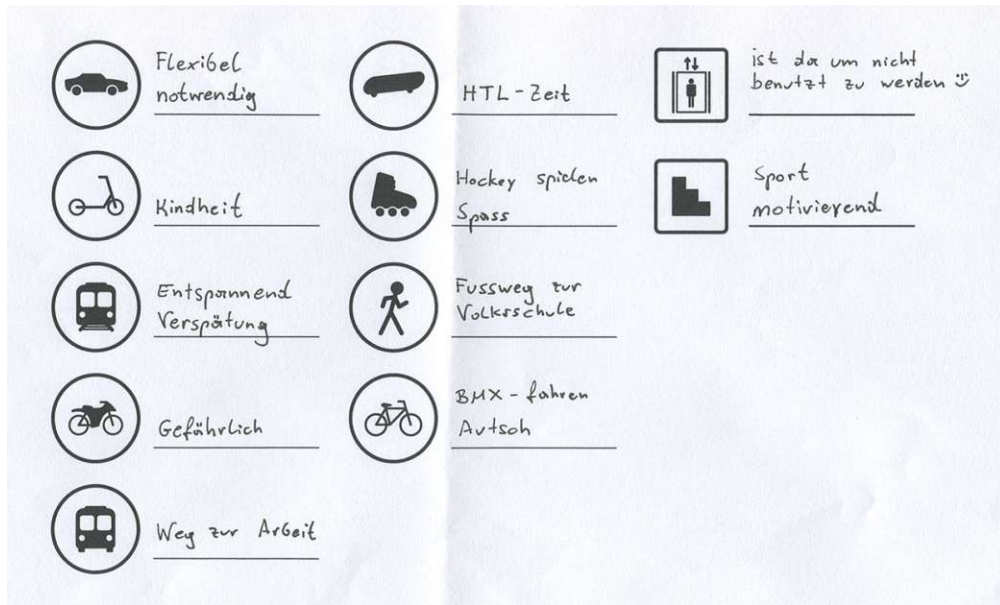 Flexibel
notwendig
Kindheit
Entspannend
Verspätung
Gefährlich
Weg zur Arbeit
HTL-Zeit
Hockey spielen
Spass
Fussweg zur
Volksschule
BMX-fahren
Autsch
ist da um nicht
benutzt zu werden
Sport
motivierend